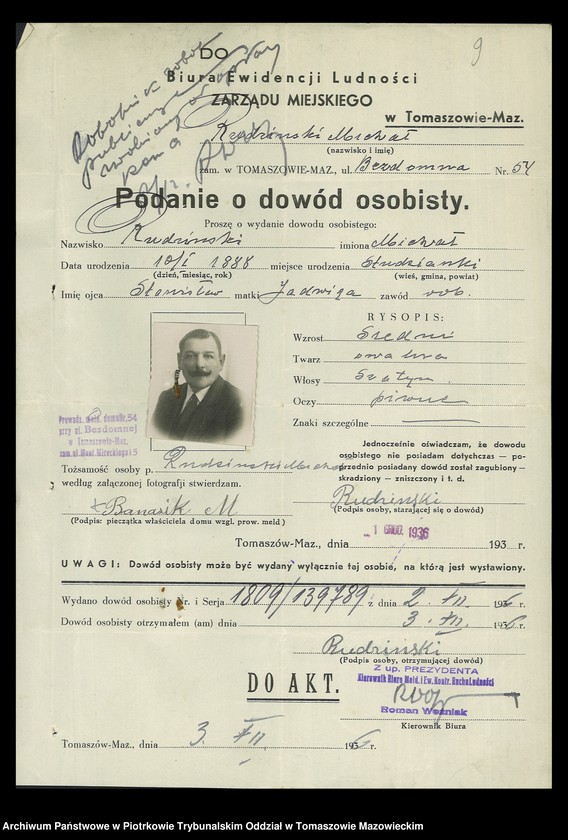 9
DO
Biura Ewidencji Ludności
ZARZĄDU MIEJSKIEGO
w Tomaszowie-Maz.
Rudziński Michał
(nazwisko i imię)
zam. w TOMASZOWIE-MAZ., ul. Bezdomna Nr. 54
Podanie o dowód osobisty.
Proszę o wydanie dowodu osobistego:
Nazwisko Rudziński imiona Michał
Data urodzenia 10/I 1888 miejsce urodzenia Studzianki
(dzień, miesiąc, rok) (wieś, gmina, powiat)
Imię ojca Stanisław matki Jadwiga zawód rob.
RYSOPIS:
Wzrost średni
Twarz owalna
Włosy szatyn
Oczy piwne
Znaki szczególne
Prowadz. meld. domu Nr. 54
przy ul. Bezdomnej
w Tomaszowie-Maz.
Jednocześnie oświadczam, że dowodu
osobistego nie posiadam dotychczas — po-
przednio posiadany dowód został zagubiony —
skradziony — zniszczony i t. d.
Tożsamość osoby p. Rudziński Michał
według załączonej fotografii stwierdzam.
Rudziński
(Podpis osoby, starającej się o dowód)
Banasik M
(Podpis: pieczątka właściciela domu wzgl. prow. meld)
Tomaszów-Maz., dnia 1 GRUD. 1936 193 r.
UWAGI: Dowód osobisty może być wydany wyłącznie tej osobie, na którą jest wystawiony.
Wydano dowód osobisty Nr. i Serja 1809/139789 z dnia 2. XII 1936 r.
Dowód osobisty otrzymałem (am) dnia 3. XII 1936 r.
Rudziński
(Podpis osoby, otrzymującej dowód)
Z up. PREZYDENTA
Kierownik Biura Meld. i Ew. Kontr. Ruchu Ludności
DO AKT.
Roman Woźniak
Kierownik Biura
Tomaszów-Maz., dnia 3. XII 1936 r.
Archiwum Państwowe w Piotrkowie Trybunalskim Oddział w Tomaszowie Mazowieckim